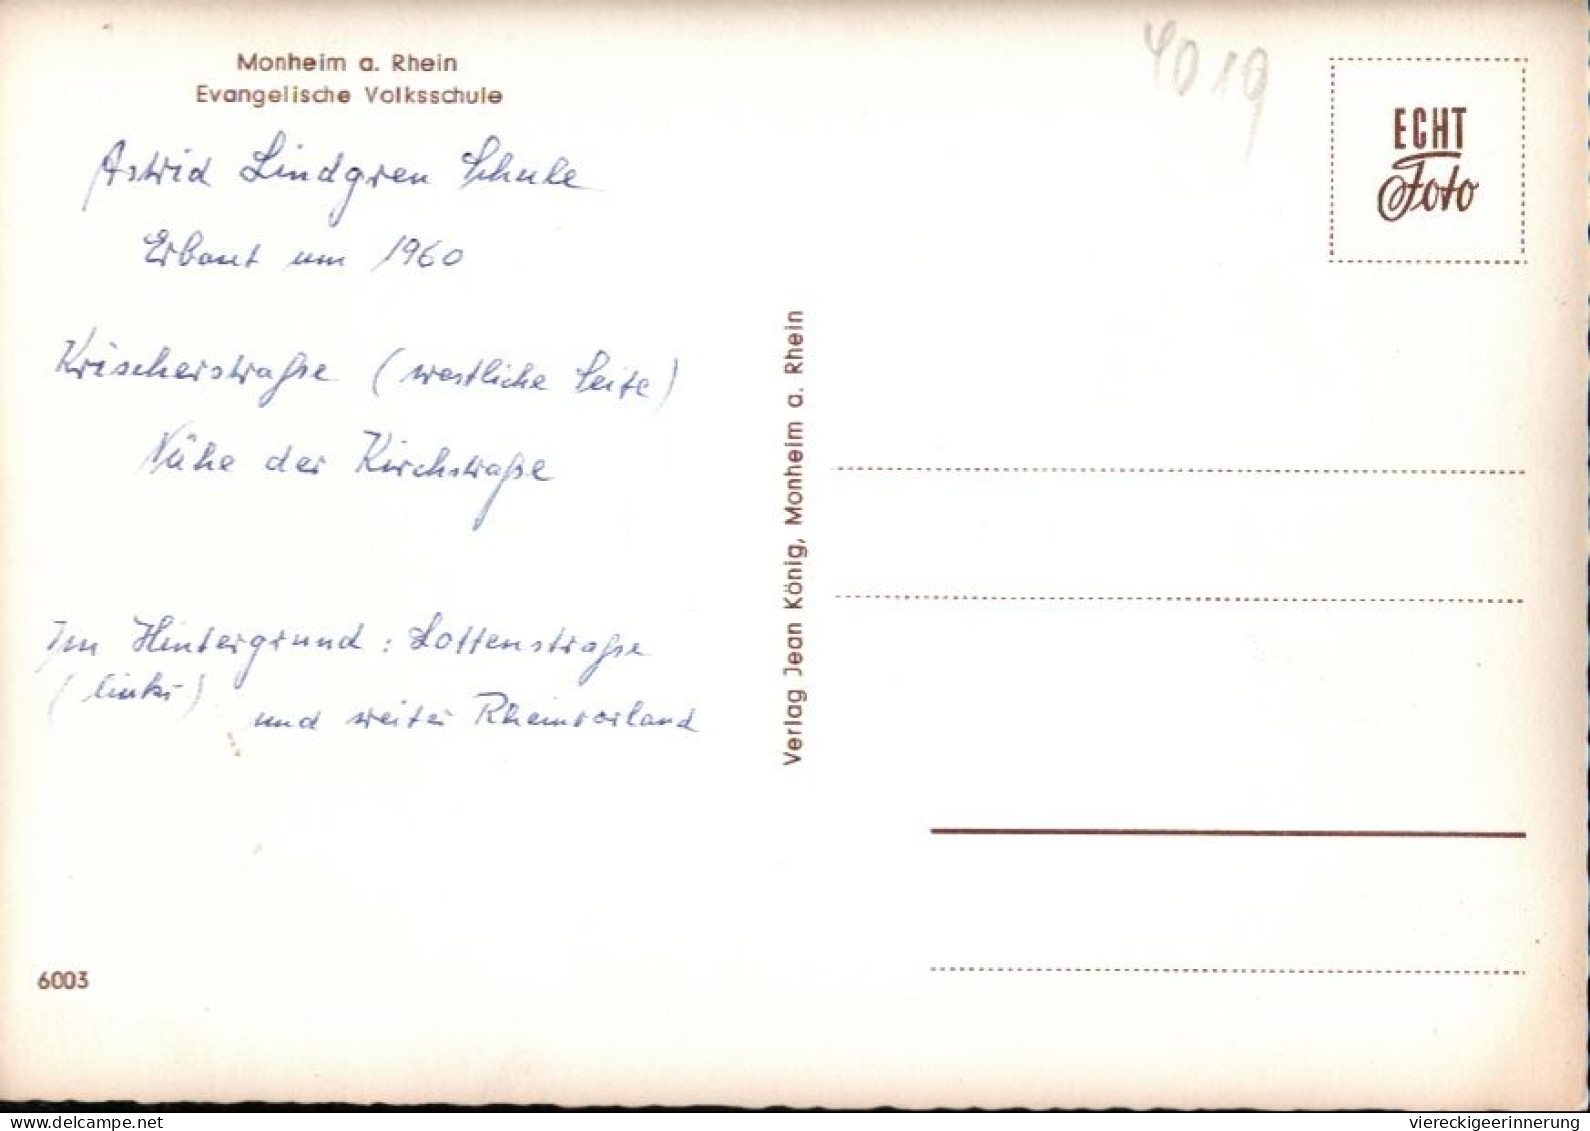 Monheim a. Rhein
Evangelische Volksschule
4019
ECHT
Foto
Astrid Lindgren Schule
Erbaut um 1960
Krischerstraße (westliche Seite)
Nähe der Kirchstraße
Im Hintergrund: Lottenstraße
(links)
und weiter Rheinvorland
Verlag Jean König, Monheim a. Rhein
6003
www.delcampe.net
viereckigeerinnerung